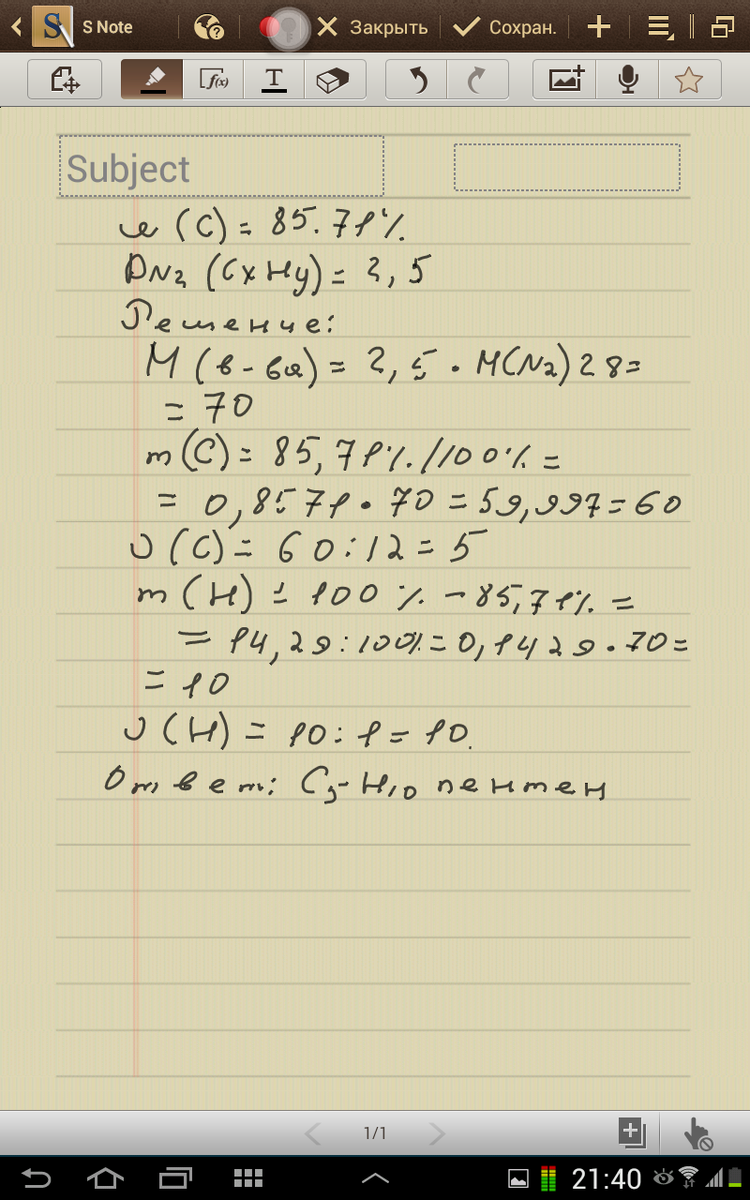 S Note
Закрыть
Сохран.
f(x)
T
Subject
ω (C) = 85.71%
DN2 (CxHy) = 2,5
Решение:
M (в-ва) = 2,5 · M(N2) 28 =
= 70
m(C) = 85,71% / 100% =
= 0,8571 · 70 = 59,997 = 60
υ (C) = 60 : 12 = 5
m (H) = 100 % - 85,71% =
= 14,29 : 100% = 0,1429 · 70 =
= 10
υ (H) = 10 : 1 = 10.
Ответ: C5H10 пентен
1/1
21:40